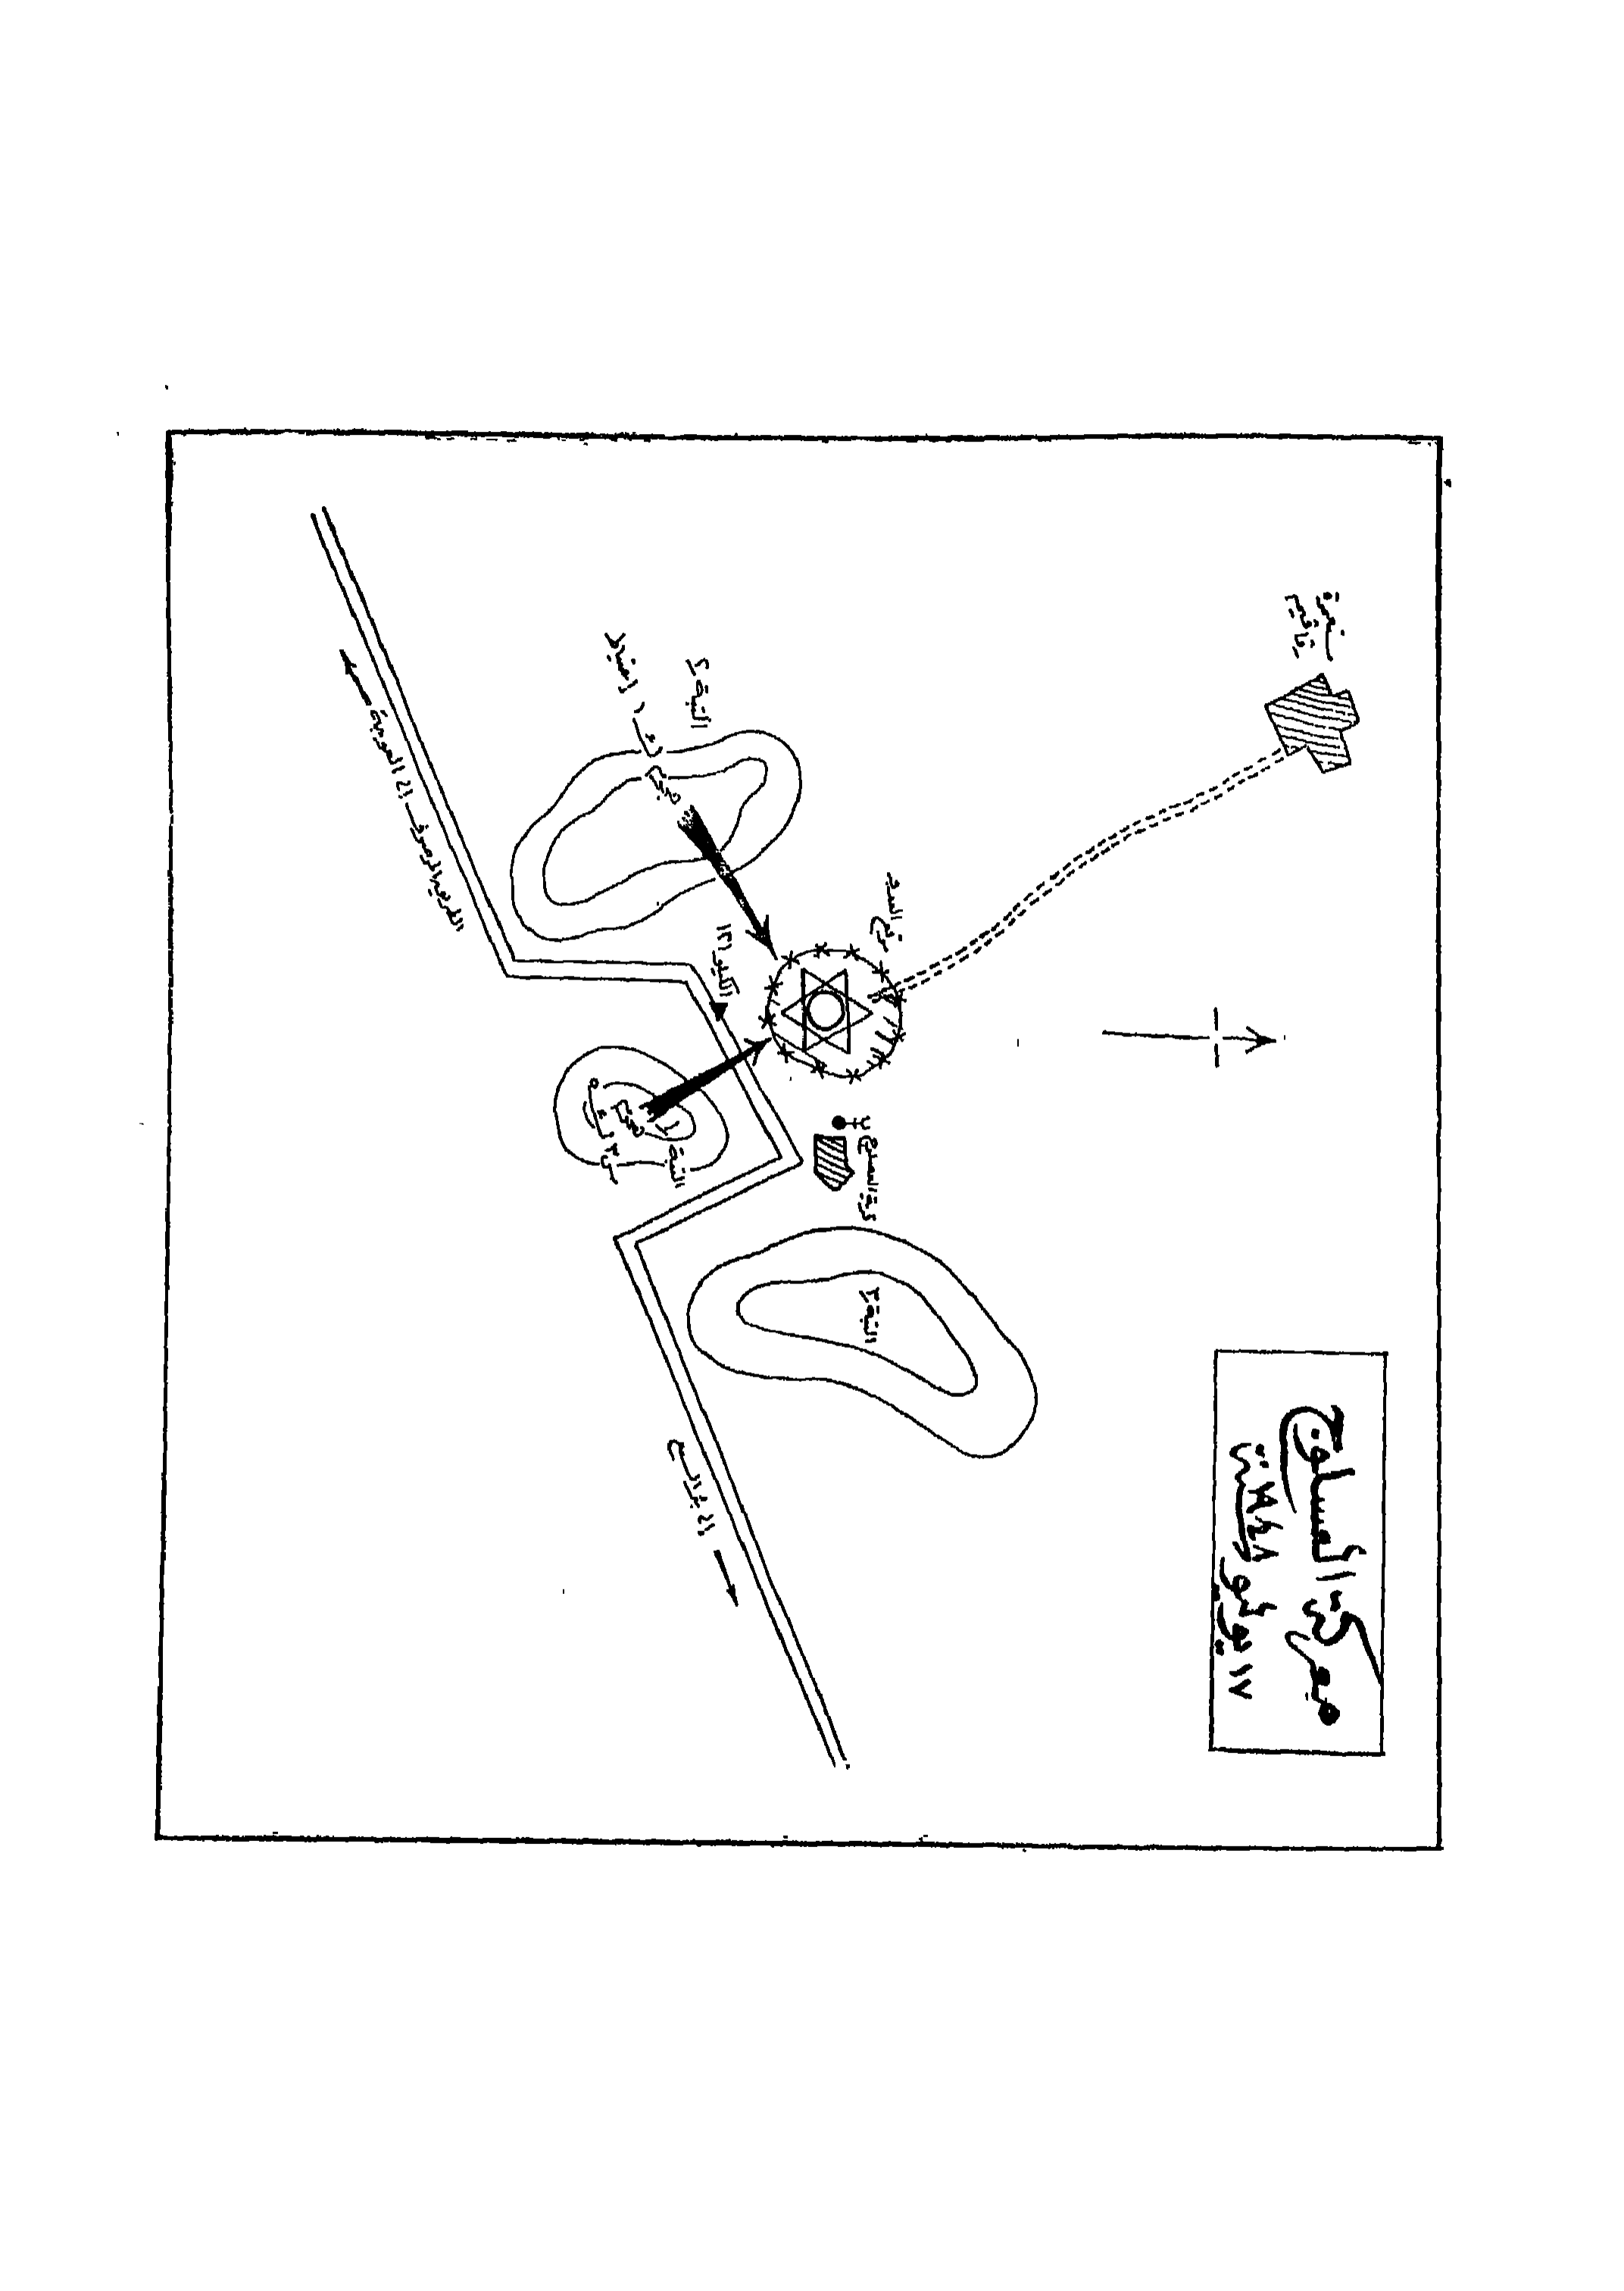 معركة العسلوج
١٧ يوليو سنة ١٩٤٨
مستعمرة
موقع العدو
قرية العسلوج
التبة ٣
التبة ٢
التبة ١
الكيلو ١٣١
هجوم
هجوم
الطريق المرصوف إلى العوجة
إلى بئر السبع